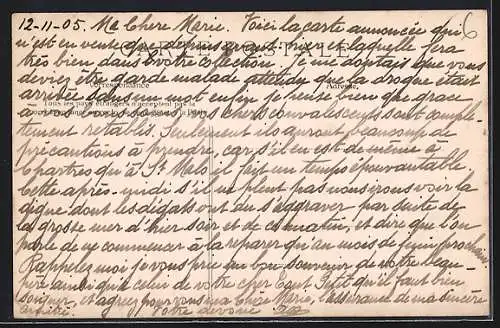 12-11-05. Ma Chère Marie. Voici la carte annoncée qui
n'est en vente que depuis avant-hier et laquelle fera
CARTE POSTALE
très bien dans votre collection. Je me doutais que vous
deviez être garde malade attendu que la drogue était
Correspondance
Adresse
arrivée dans un mot enfin je
bien que grâce
Tous les pays étrangers n'acceptent pas la
à vos bons soins vos chers convalescents sont complè-
tement rétablis. Seulement ils auront beaucoup de
précautions à prendre, car s'il en est de même à
Chartres qu'à St Malo il fait un temps épouvantable
Cette après-midi s'il ne pleut pas nous irons voir la
digue dont les dégâts ont du s'aggraver par suite de
la grosse mer d'hier soir et de ce matin, et dire que l'on
parle de ne commencer à la réparer qu'au mois de juin prochain
Rappelez moi je vous prie au bon souvenir de votre beau-
père ainsi qu'à celui de votre cher
Petit qu'il faut bien
soigner, et agréez pour vous ma Chère Marie, l'assurance de ma sincère
amitié. Votre dévoué
6